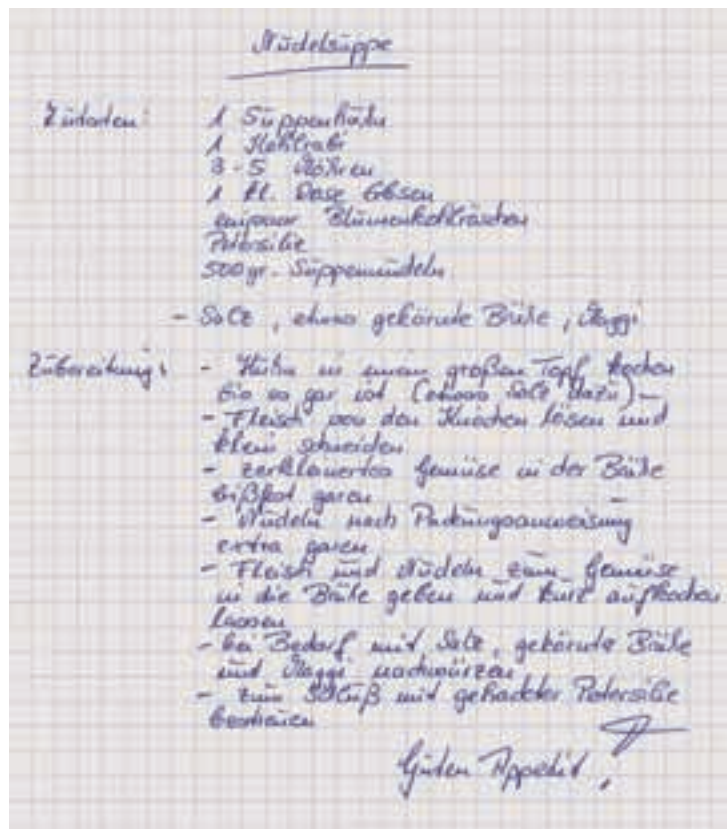 Nudelsuppe
Zutaten: 1 Suppenhuhn
1 Kohlrabi
3-5 Möhren
1 kl. Dose Erbsen
einpaar Blumenkohlröschen
Petersilie
500 gr. Suppennudeln
- Salz, etwas gekörnte Brühe, Maggi
Zubereitung: - Huhn in einem großen Topf kochen
bis es gar ist (etwas Salz dazu) -
- Fleisch von den Knochen lösen und
klein schneiden
- zerkleinertes Gemüse in der Brühe
bißfest garen
- Nudeln nach Packungsanweisung
extra garen
- Fleisch und Nudeln zum Gemüse
in die Brühe geben und kurz aufkochen
lassen
- bei Bedarf mit Salz, gekörnte Brühe
und Maggi nachwürzen
- zum Schluß mit gehackter Petersilie
bestreuen
Guten Appetit!